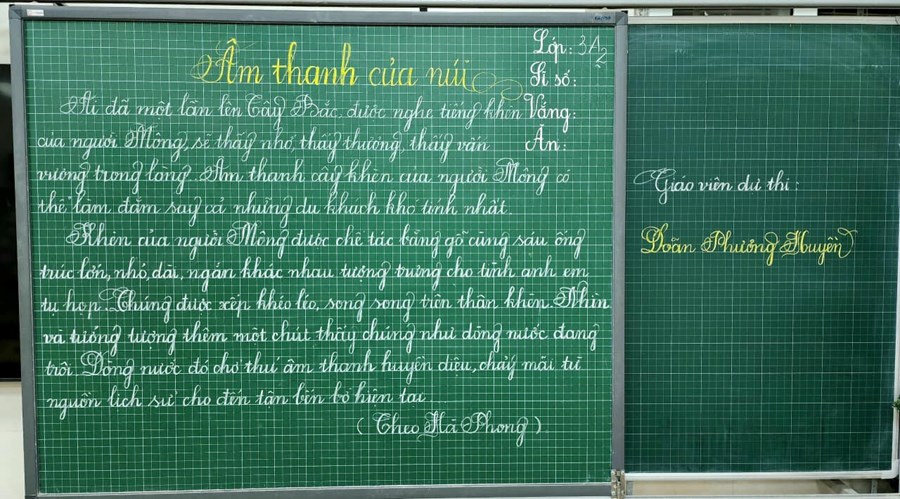 Âm thanh của núi
Lớp: 3A2
Sĩ số:
Vắng:
Ăn:
Ai đã một lần lên Tây Bắc, được nghe tiếng khèn
của người Mông, sẽ thấy nhớ, thấy thương, thấy vấn
vương trong lòng. Âm thanh cây khèn của người Mông có
thể làm đắm say cả những du khách khó tính nhất.
Khèn của người Mông được chế tác bằng gỗ cùng sáu ống
trúc lớn, nhỏ, dài, ngắn khác nhau tượng trưng cho tình anh em
tụ họp. Chúng được xếp khéo léo, song song trên thân khèn. Nhìn
và tưởng tượng thêm một chút thấy chúng như dòng nước đang
trôi. Dòng nước đó chở thứ âm thanh huyền diệu, chảy mãi từ
nguồn lịch sử cho đến tận bến bờ hiện tại...
( Theo Hà Phong )
Giáo viên dự thi:
Doãn Phương Huyền